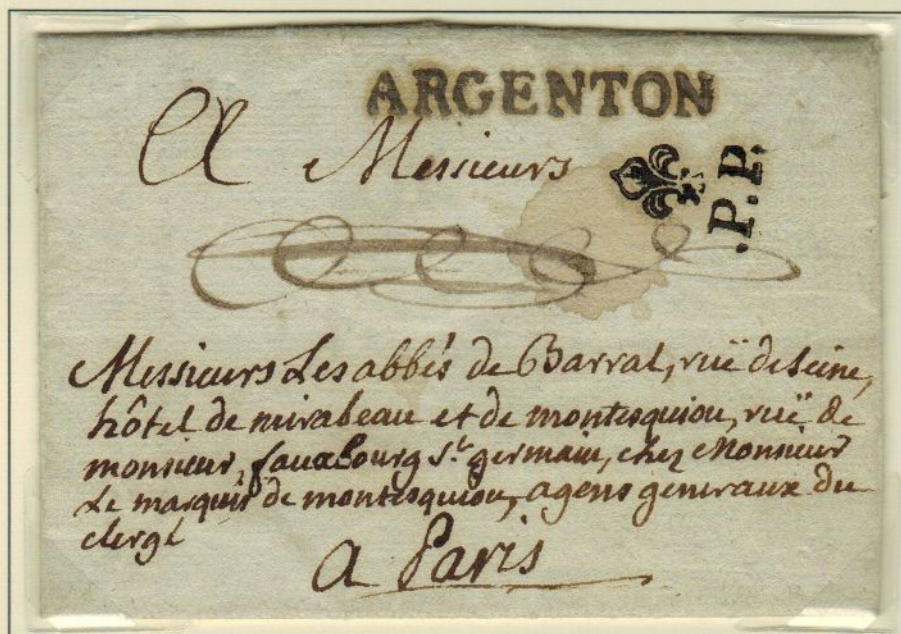 ARGENTON
A Messieurs
P.P.
Messieurs Les abbés de Barral, ruë de seine,
hôtel de mirabeau et de montesquiou, ruë de
monsieur, fauxbourg St. germain, chez Monsieur
Le marquis de montesquiou, agens generaux du
clergé
a Paris